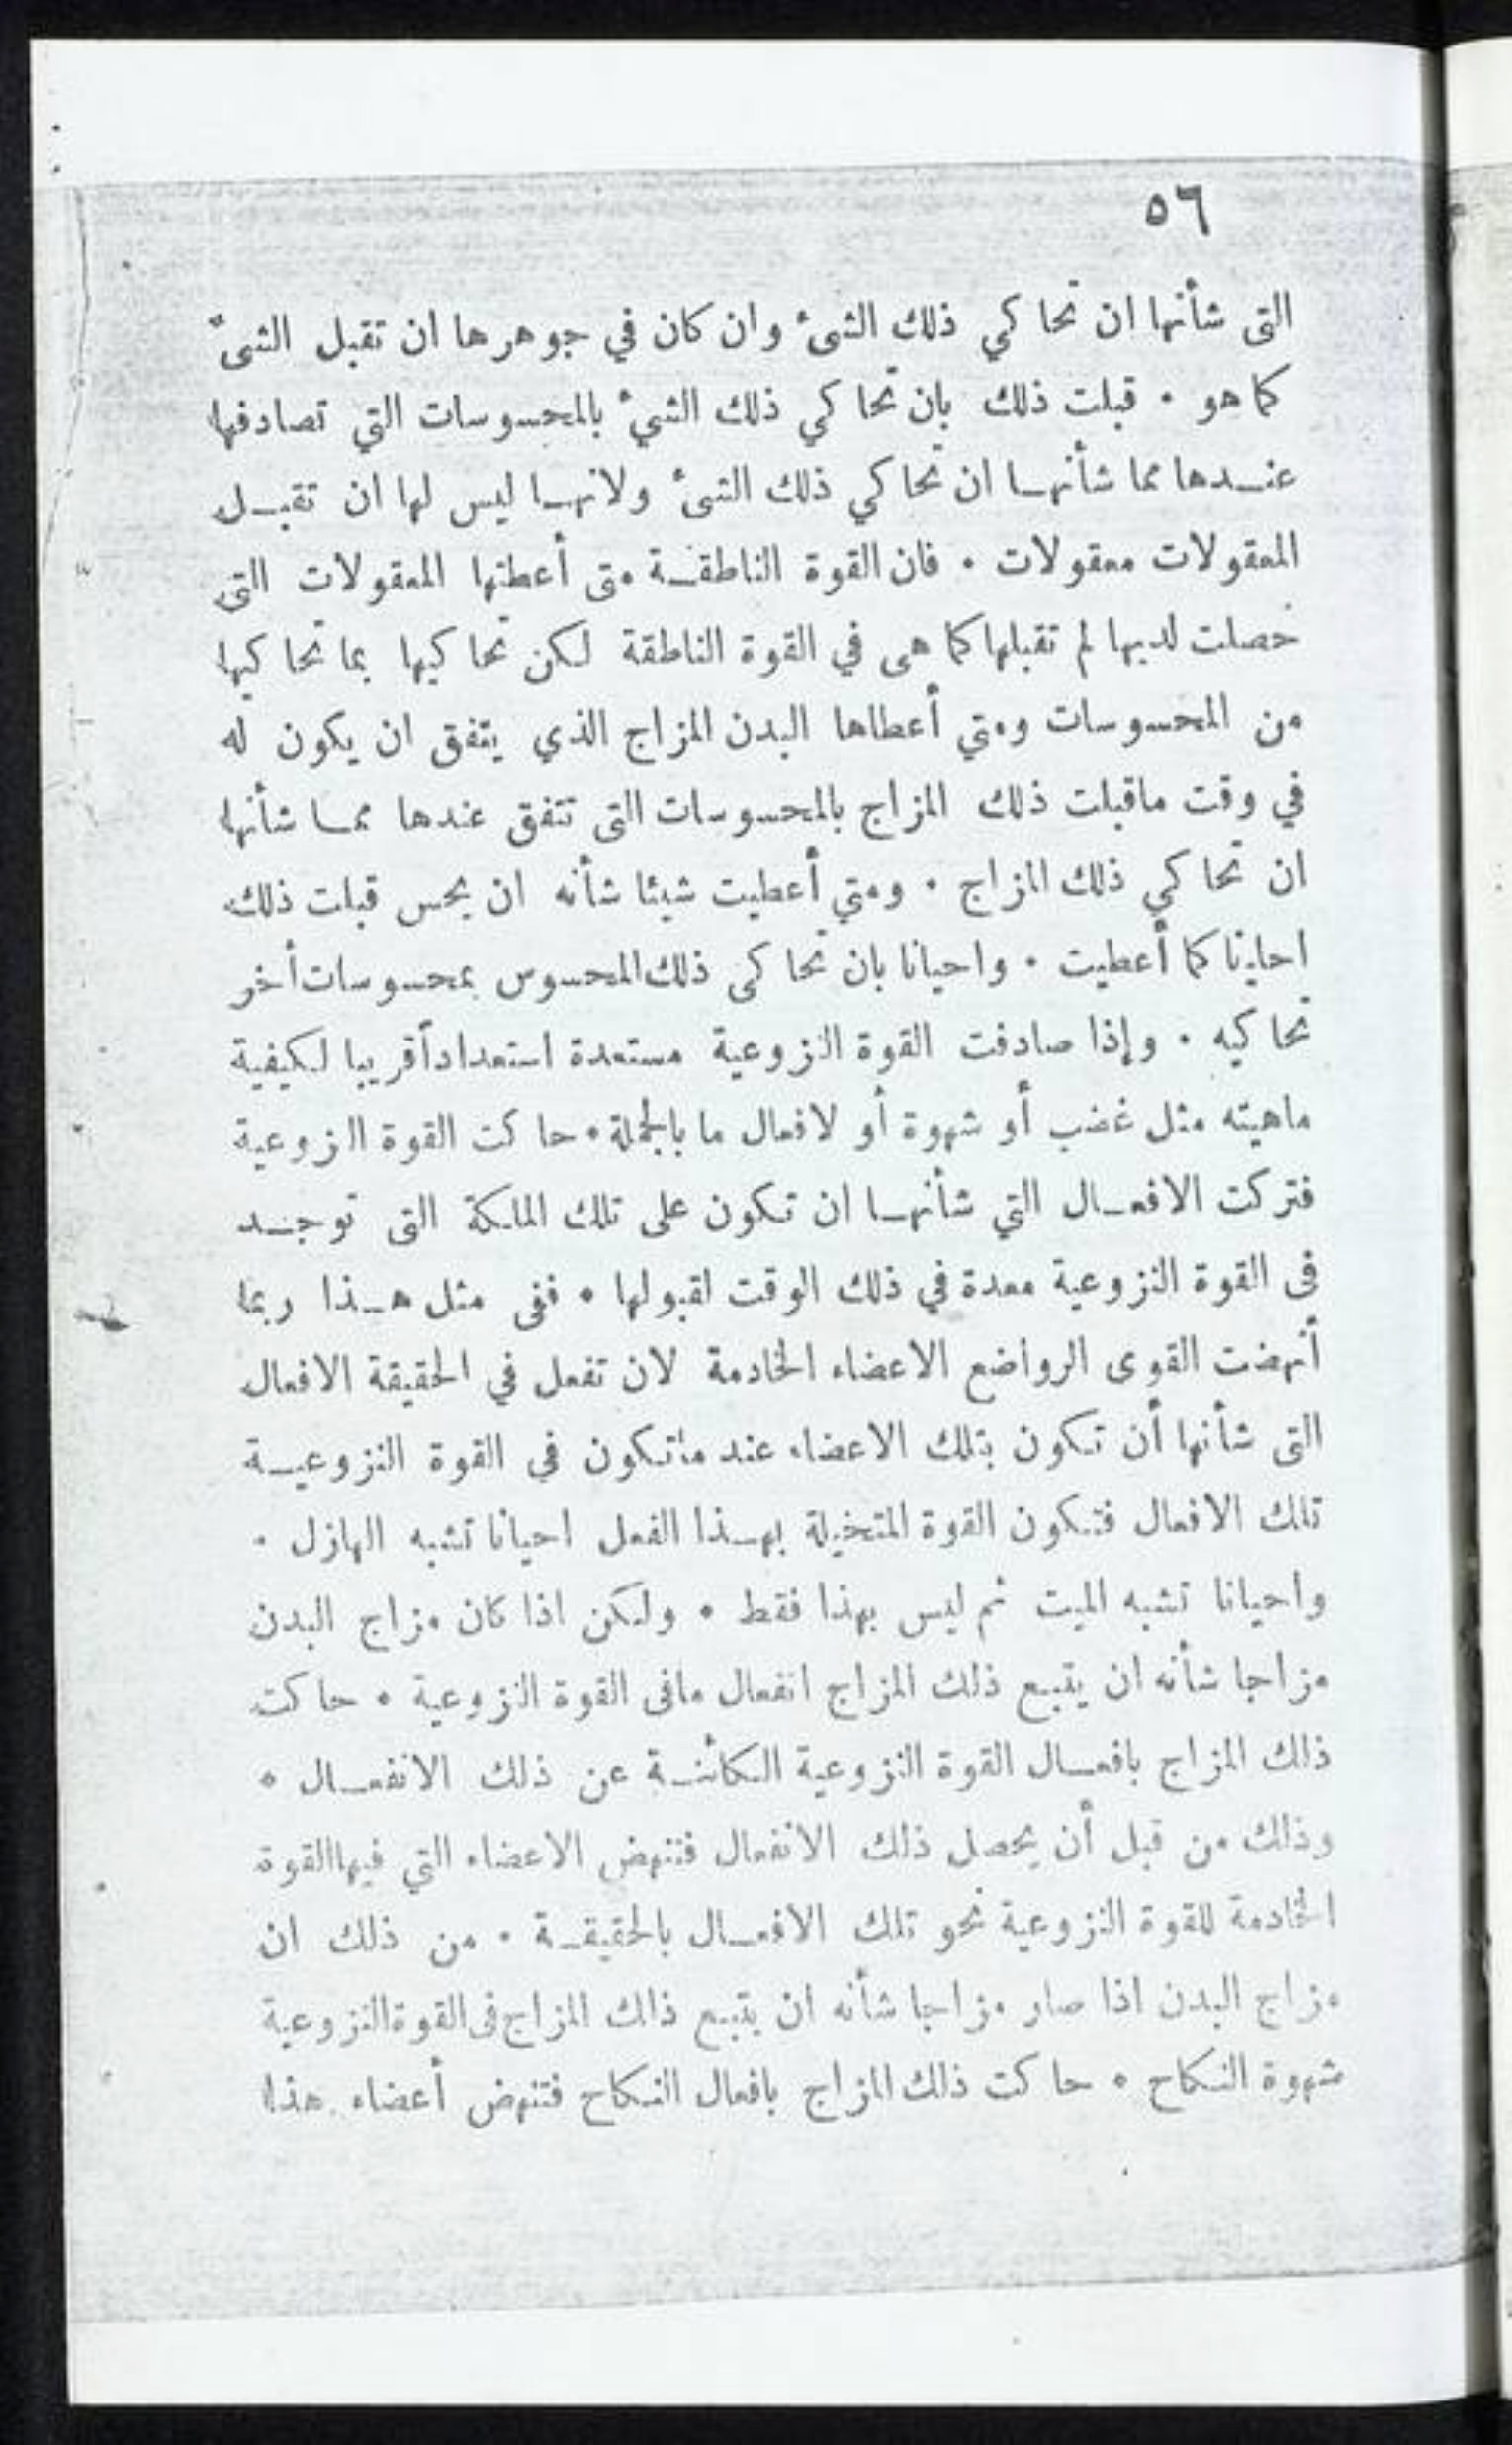 ٥٦
التى شأنها ان تحاكي ذلك الشئ وان كان في جوهرها ان تقبل الشئ
كما هو ٠ قبلت ذلك بان تحاكي ذلك الشيء بالمحسوسات التي تصادفها
عندها مما شأنها ان تحاكي ذلك الشئ ولانها ليس لها ان تقبل
المعقولات معقولات ٠ فان القوة الناطقة متى أعطتها المعقولات التى
حصلت لديها لم تقبلها كما هى في القوة الناطقة لكن تحاكيها بما تحاكيها
من المحسوسات ومتي أعطاها البدن المزاج الذي يتفق ان يكون له
في وقت ماقبلت ذلك المزاج بالمحسوسات التى تتفق عندها مما شأنها
ان تحاكي ذلك المزاج ٠ ومتي أعطيت شيئا شأنه ان يحس قبلت ذلك
احيانا كما أعطيت ٠ واحيانا بان تحاكى ذلك المحسوس بمحسوسات أخر
تحاكيه ٠ وإذا صادفت القوة النزوعية مستعدة استعداداً قريبا لكيفية
ماهيته مثل غضب أو شهوة أو لافعال ما بالجملة ٠ حاكت القوة النزوعية
فتركت الافعال التي شأنها ان تكون على تلك الملكة التى توجد
فى القوة النزوعية معدة في ذلك الوقت لقبولها ٠ ففى مثل هذا ربما
أنهضت القوى الرواضع الاعضاء الخادمة لان تفعل في الحقيقة الافعال
التى شأنها أن تكون بتلك الاعضاء عند ماتكون في القوة النزوعية
تلك الافعال فتكون القوة المتخيلة بهذا الفعل احيانا تشبه الهازل ٠
واحيانا تشبه الميت ثم ليس بهذا فقط ٠ ولكن اذا كان مزاج البدن
مزاجا شأنه ان يتبع ذلك المزاج انفعال مافى القوة النزوعية ٠ حاكت
ذلك المزاج بافعال القوة النزوعية الكائنة عن ذلك الانفعال ٠
وذلك من قبل أن يحصل ذلك الانفعال فتنهض الاعضاء التي فيها القوة
الخادمة للقوة النزوعية نحو تلك الافعال بالحقيقة ٠ من ذلك ان
مزاج البدن اذا صار مزاجا شأنه ان يتبع ذلك المزاج فى القوة النزوعية
شهوة النكاح ٠ حاكت ذلك المزاج بافعال النكاح فتنهض أعضاء هذا